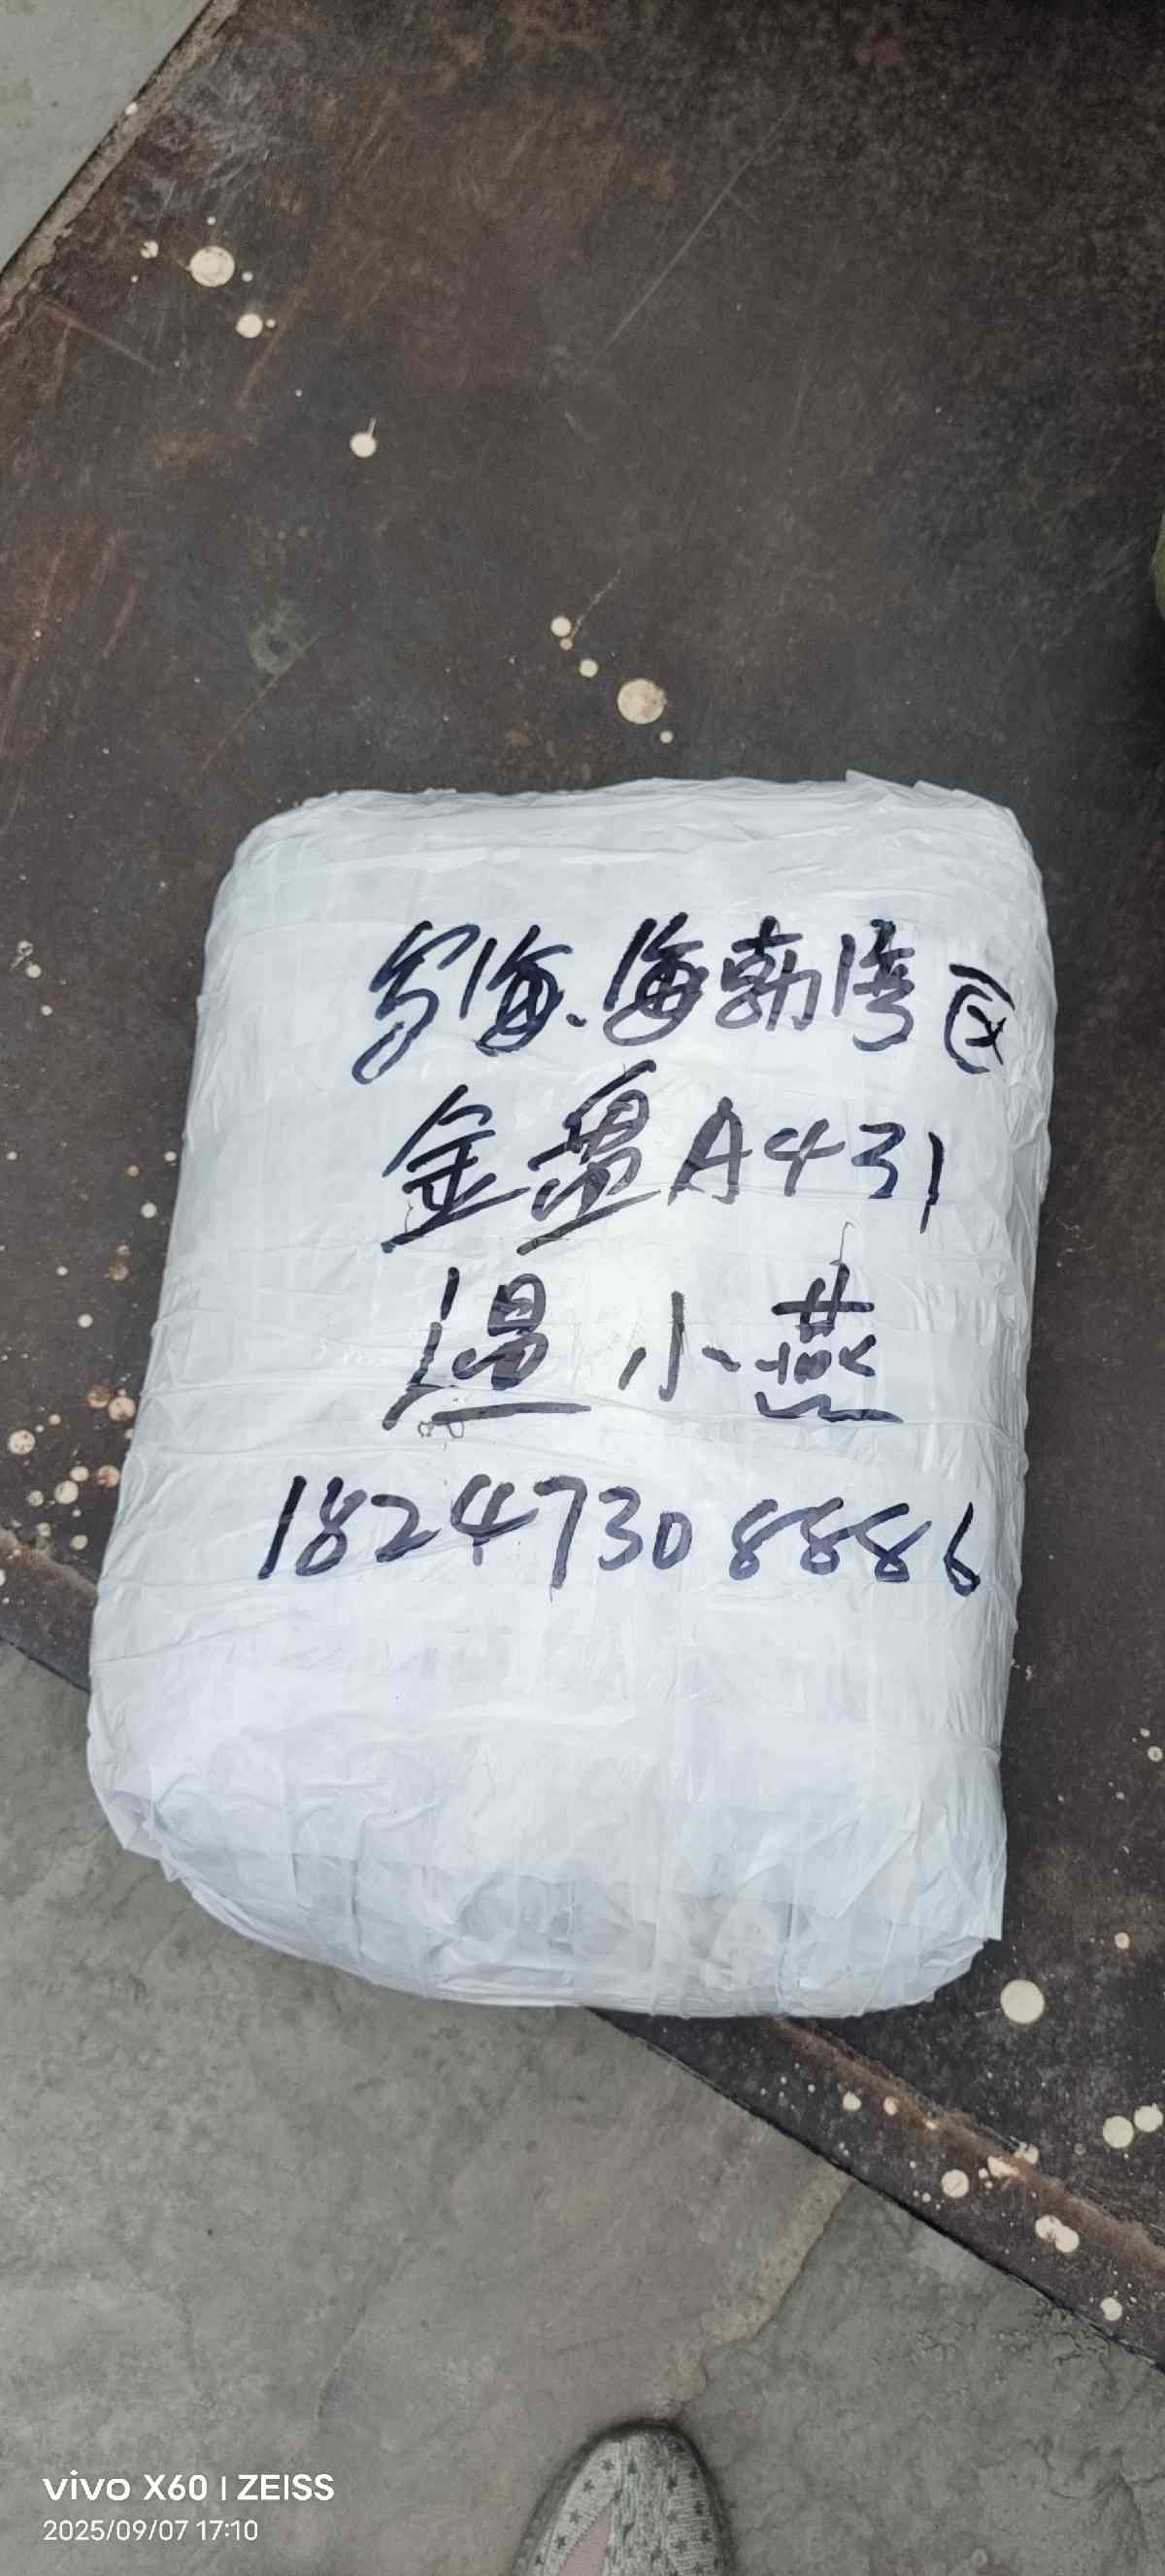 乌海.海勃湾区
金盟A431
温小燕
18247308886
vivo X60 | ZEISS
2025/09/07 17:10